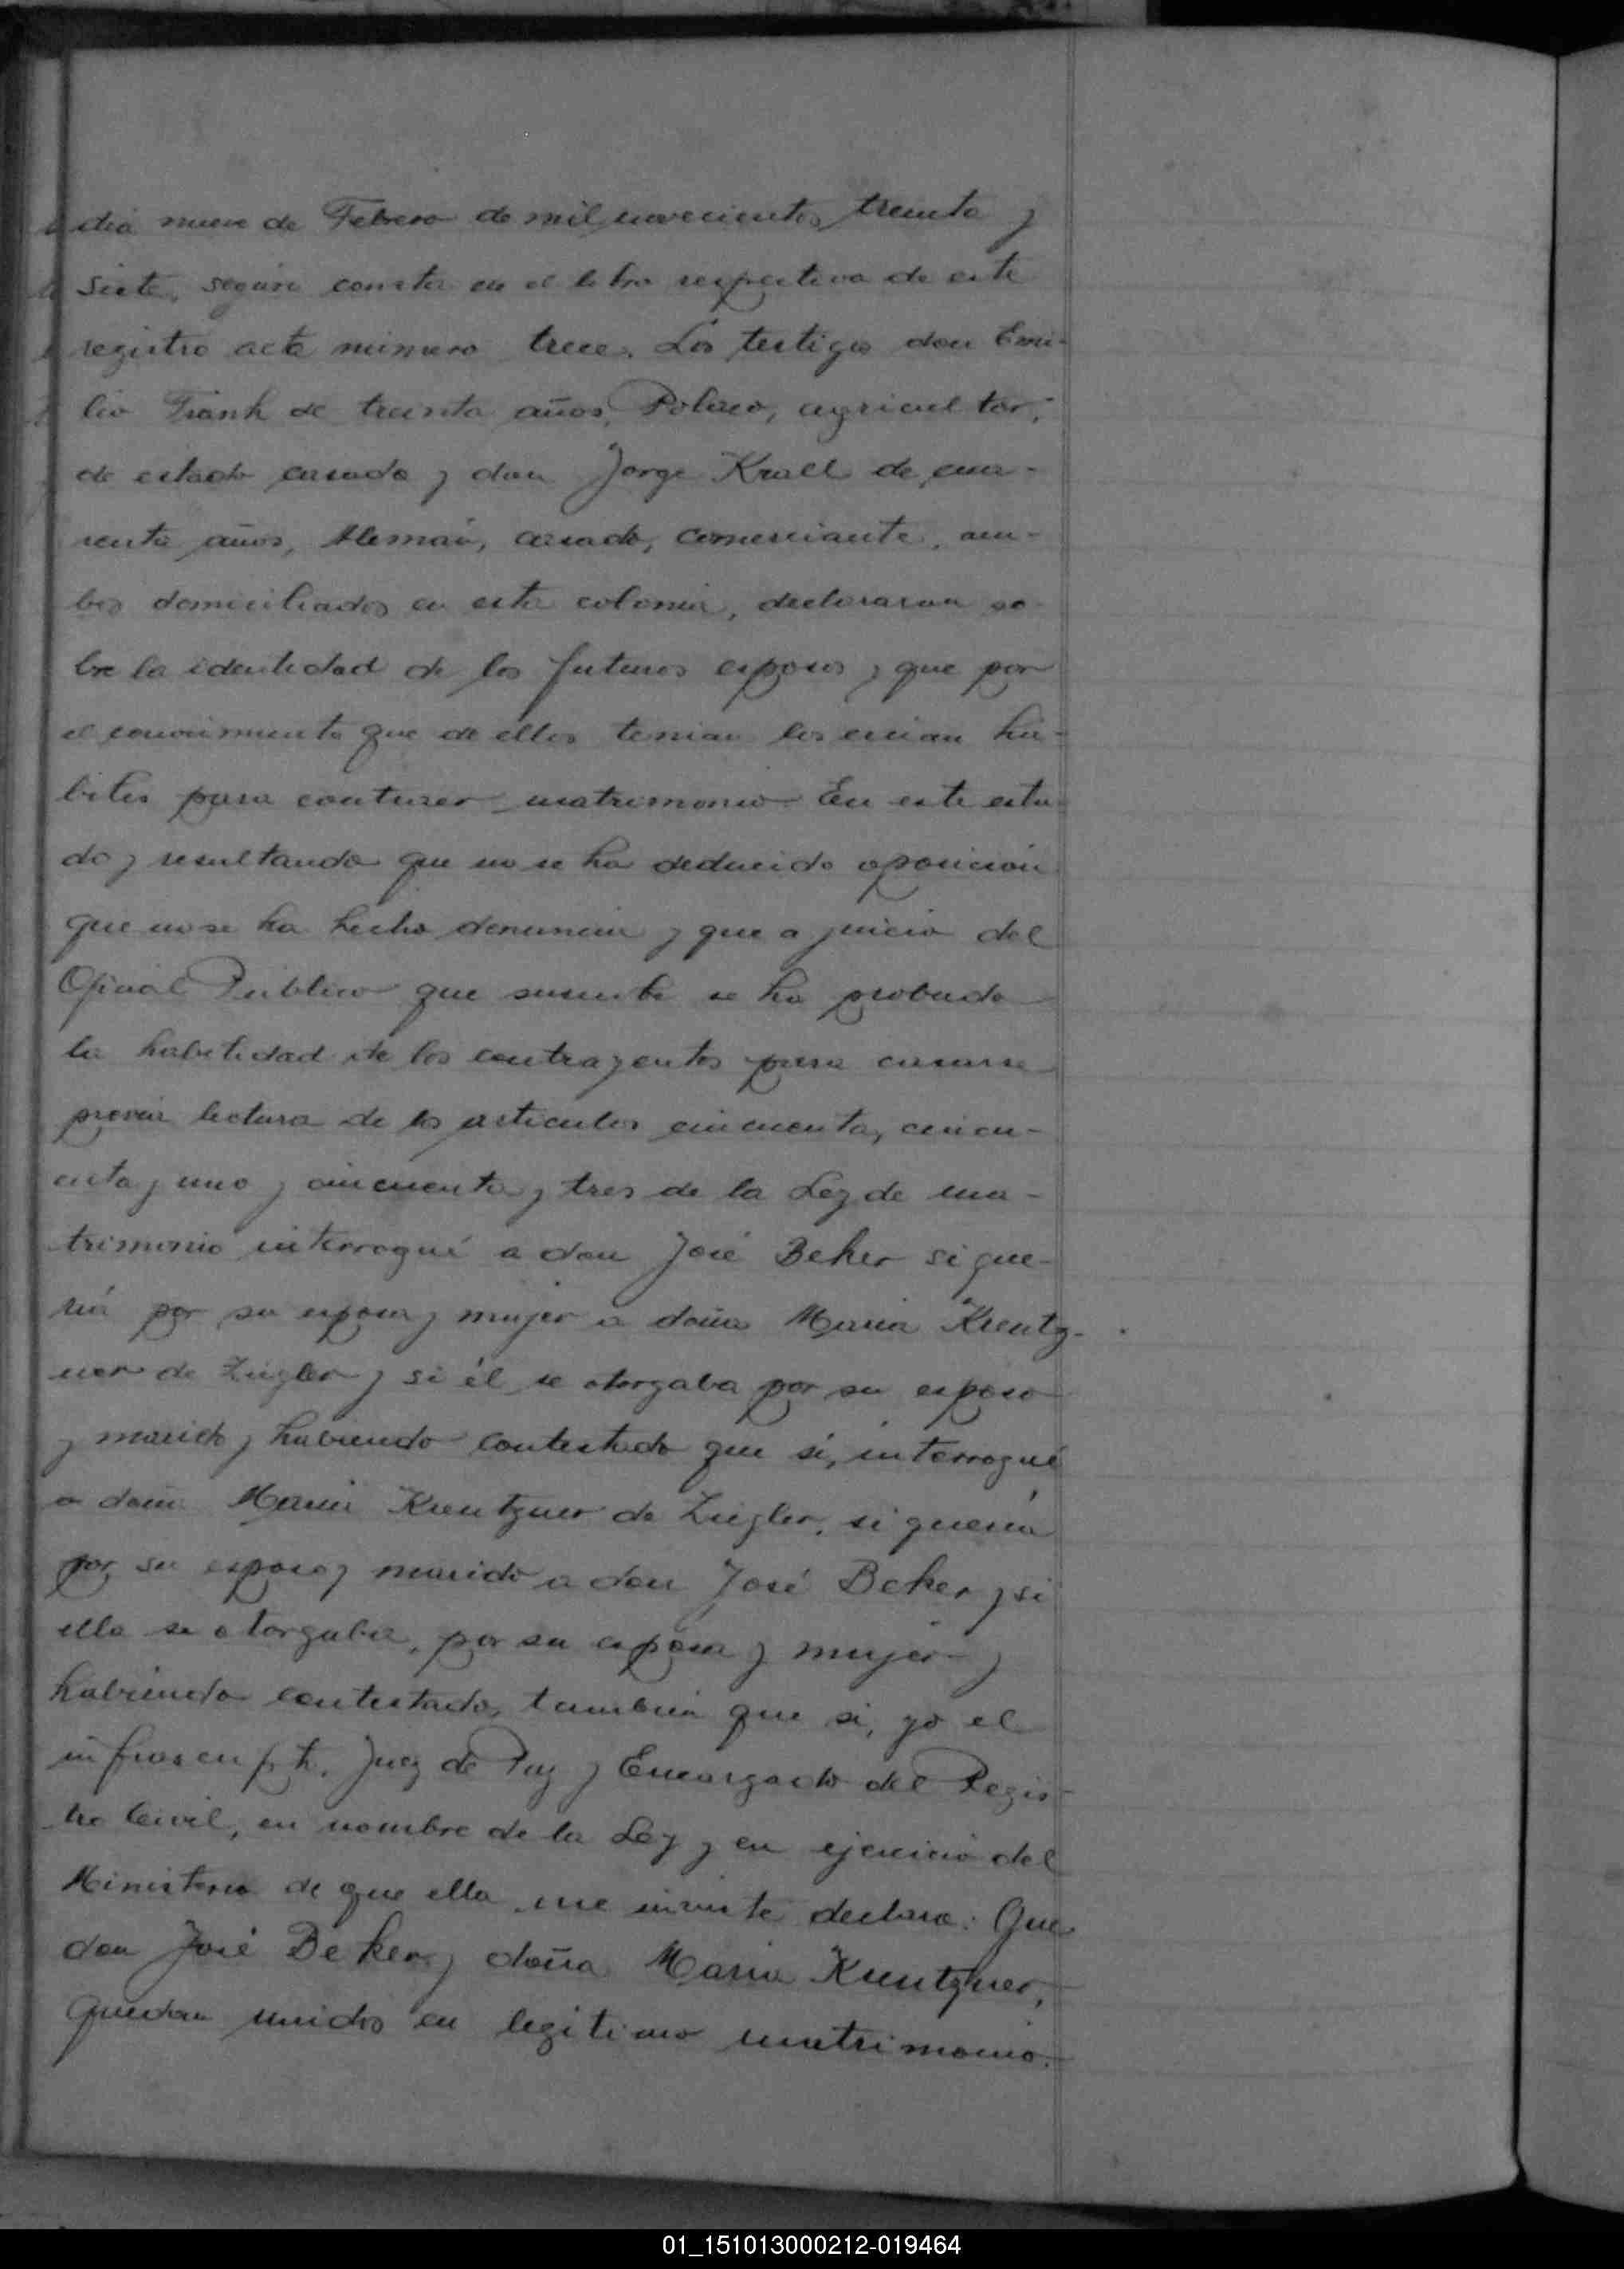 día nueve de Febrero de mil novecientos treinta y
siete, según consta en el libro respectivo de este
registro acta número trece. Los testigos don Emi-
lio Frank de treinta años, Polaco, agricultor,
de estado casado y don Jorge Krall de cua-
renta años, Alemán, casado, comerciante, am-
bos domiciliados en esta colonia, declararon so-
bre la identidad de los futuros esposos y que por
el conocimiento que de ellos tenian los creian há-
biles para contraer matrimonio En este esta-
do y resultando que no se ha deducido oposición
que no se ha hecho denuncia y que a juicio del
Oficial Público que suscribe se ha probado
la habilidad de los contrayentes para casarse
previa lectura de los articulos cincuenta, cincu-
enta y uno y cincuenta y tres de la Ley de ma-
trimonio interrogué a don José Beker si que-
ría por su esposa y mujer a doña Maria Kreutz-
ner de Ziegler y si él se otorgaba por su esposo
y marido y habiendo contestado que sí, interrogué
a doña Maria Kreutzner de Ziegler, si quería
por su esposo y marido a don José Beker y si
ella se otorgaba, por su esposa y mujer y
habiendo contestado, también que si, yo el
infrascripto, Juez de Paz y Encargado del Regis-
tro Civil, en nombre de la Ley y en ejercicio del
Ministerio de que ella me inviste declaro: Que
don José Beker y doña Maria Kreutzner,
quedan unidos en legitimo matrimonio.
01_151013000212-019464